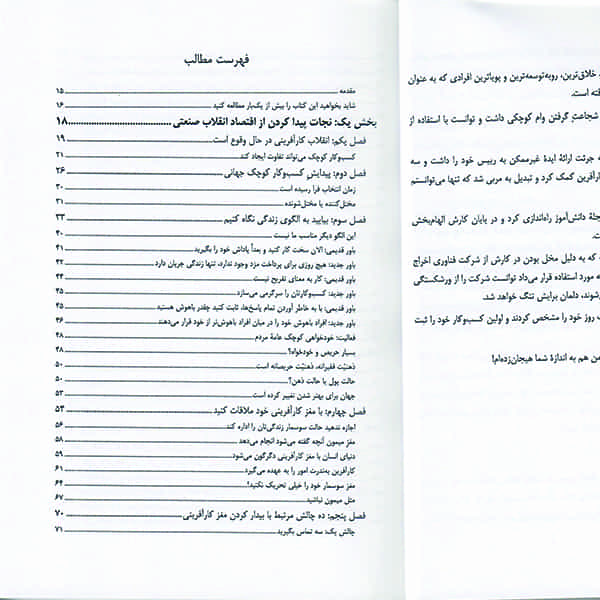 خلاق‌ترین، روبه‌توسعه‌ترین و پویاترین افرادی که به عنوان
فته است.
شجاعتِ گرفتن وام کوچکی داشت و توانست با استفاده از
جرئت ارائهٔ ایدهٔ غیرممکن به رییس خود را داشت و سه
کارآفرین کمک کرد و تبدیل به مربی شد که تنها می‌توانستم
جلهٔ دانش‌آموز راه‌اندازی کرد و در پایان کارش الهام‌بخش
ت.
که به دلیل مخل بودن در کارش از شرکت فناوری اخراج
مورد استفاده قرار می‌داد توانست شرکت را از ورشکستگی
می‌شوند، دلمان برایش تنگ خواهد شد.
روز خود را مشخص کردند و اولین کسب‌وکار خود را ثبت
من هم به اندازهٔ شما هیجان‌زده‌ام!
فهرست مطالب
مقدمه ۱۵
شاید بخواهید این کتاب را بیش از یک‌بار مطالعه کنید ۱۶
بخش یک: نجات پیدا کردن از اقتصاد انقلاب صنعتی ۱۸
فصل یکم: انقلاب کارآفرینی در حال وقوع است ۱۹
کسب‌وکار کوچک می‌تواند تفاوت ایجاد کند ۲۱
فصل دوم: پیدایش کسب‌وکار کوچک جهانی ۲۶
زمان انتخاب فرا رسیده است ۳۰
مختل‌کننده یا مختل‌شونده ۳۱
فصل سوم: بیایید به الگوی زندگی نگاه کنیم ۳۳
این الگو دیگر مناسب ما نیست ۴۰
باور قدیمی: الان سخت کار کنید و بعداً پاداش خود را بگیرید ۴۱
باور جدید: هیچ روزی برای پرداخت مزد وجود ندارد، تنها زندگی جریان دارد ۴۲
باور قدیمی: کار به معنای تفریح نیست ۴۴
باور جدید: کسب‌وکارتان را سرگرمی می‌سازد ۴۵
باور قدیمی: با به خاطر آوردن تمام پاسخ‌ها، ثابت کنید چقدر باهوش هستید ۴۵
باور جدید: افراد باهوش خود را در میان افراد باهوش‌تر از خود قرار می‌دهند ۴۶
فعالیت: خودخواهی کوچک عامهٔ مردم ۴۸
بسیار حریص و خودخواه؟ ۴۸
ذهنیّت فقیرانه، ذهنیّت حریصانه است ۵۰
حالت پول یا حالت ذهن؟ ۵۰
جهان برای بهتر شدن تغییر کرده است ۵۳
فصل چهارم: با مغز کارآفرینی خود ملاقات کنید ۵۴
اجازه ندهید حالت سوسمار زندگی‌تان را اداره کند ۵۶
مغز میمون آنچه گفته می‌شود انجام می‌دهد ۵۸
دنیای انسان با مغز کارآفرینی دگرگون می‌شود ۵۹
کارآفرین به‌ندرت امور را به عهده می‌گیرد ۶۱
مغز سوسمار خود را خیلی تحریک نکنید! ۶۴
مثل میمون نباشید ۶۷
فصل پنجم: ده چالش مرتبط با بیدار کردن مغز کارآفرینی ۷۰
چالش یک: سه تماس بگیرید ۷۱